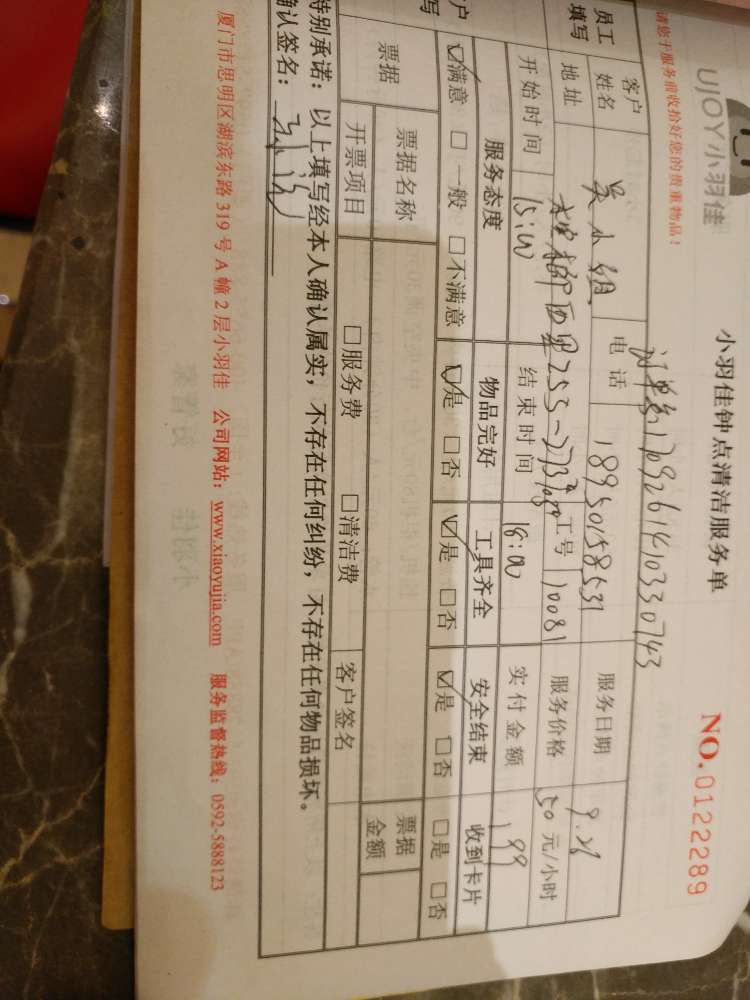 UJOY小羽佳
小羽佳钟点清洁服务单
NO.0122289
请您于服务前收拾好您的贵重物品!
17092614103330743
员工
填写
客户
姓名
吴小姐
电话
18950158531
服务日期
9.26
地址
西里253-
工号
10081
服务价格
50元/小时
开始时间
15:00
结束时间
18:00
实付金额
199
户
写
服务态度
物品完好
工具齐全
安全结束
收到卡片
☑满意 □一般 □不满意
☑是 □否
☑是 □否
☑是 □否
□是 □否
票据
票据名称
票据
金额
开票项目
□服务费 □清洁费
客户签名
特别承诺:以上填写经本人确认属实,不存在任何纠纷,不存在任何物品损坏。
确认签名:
厦门市思明区湖滨东路319号A幢2层小羽佳 公司网站:www.xiaoyujia.com 服务监督热线:0592-5888123